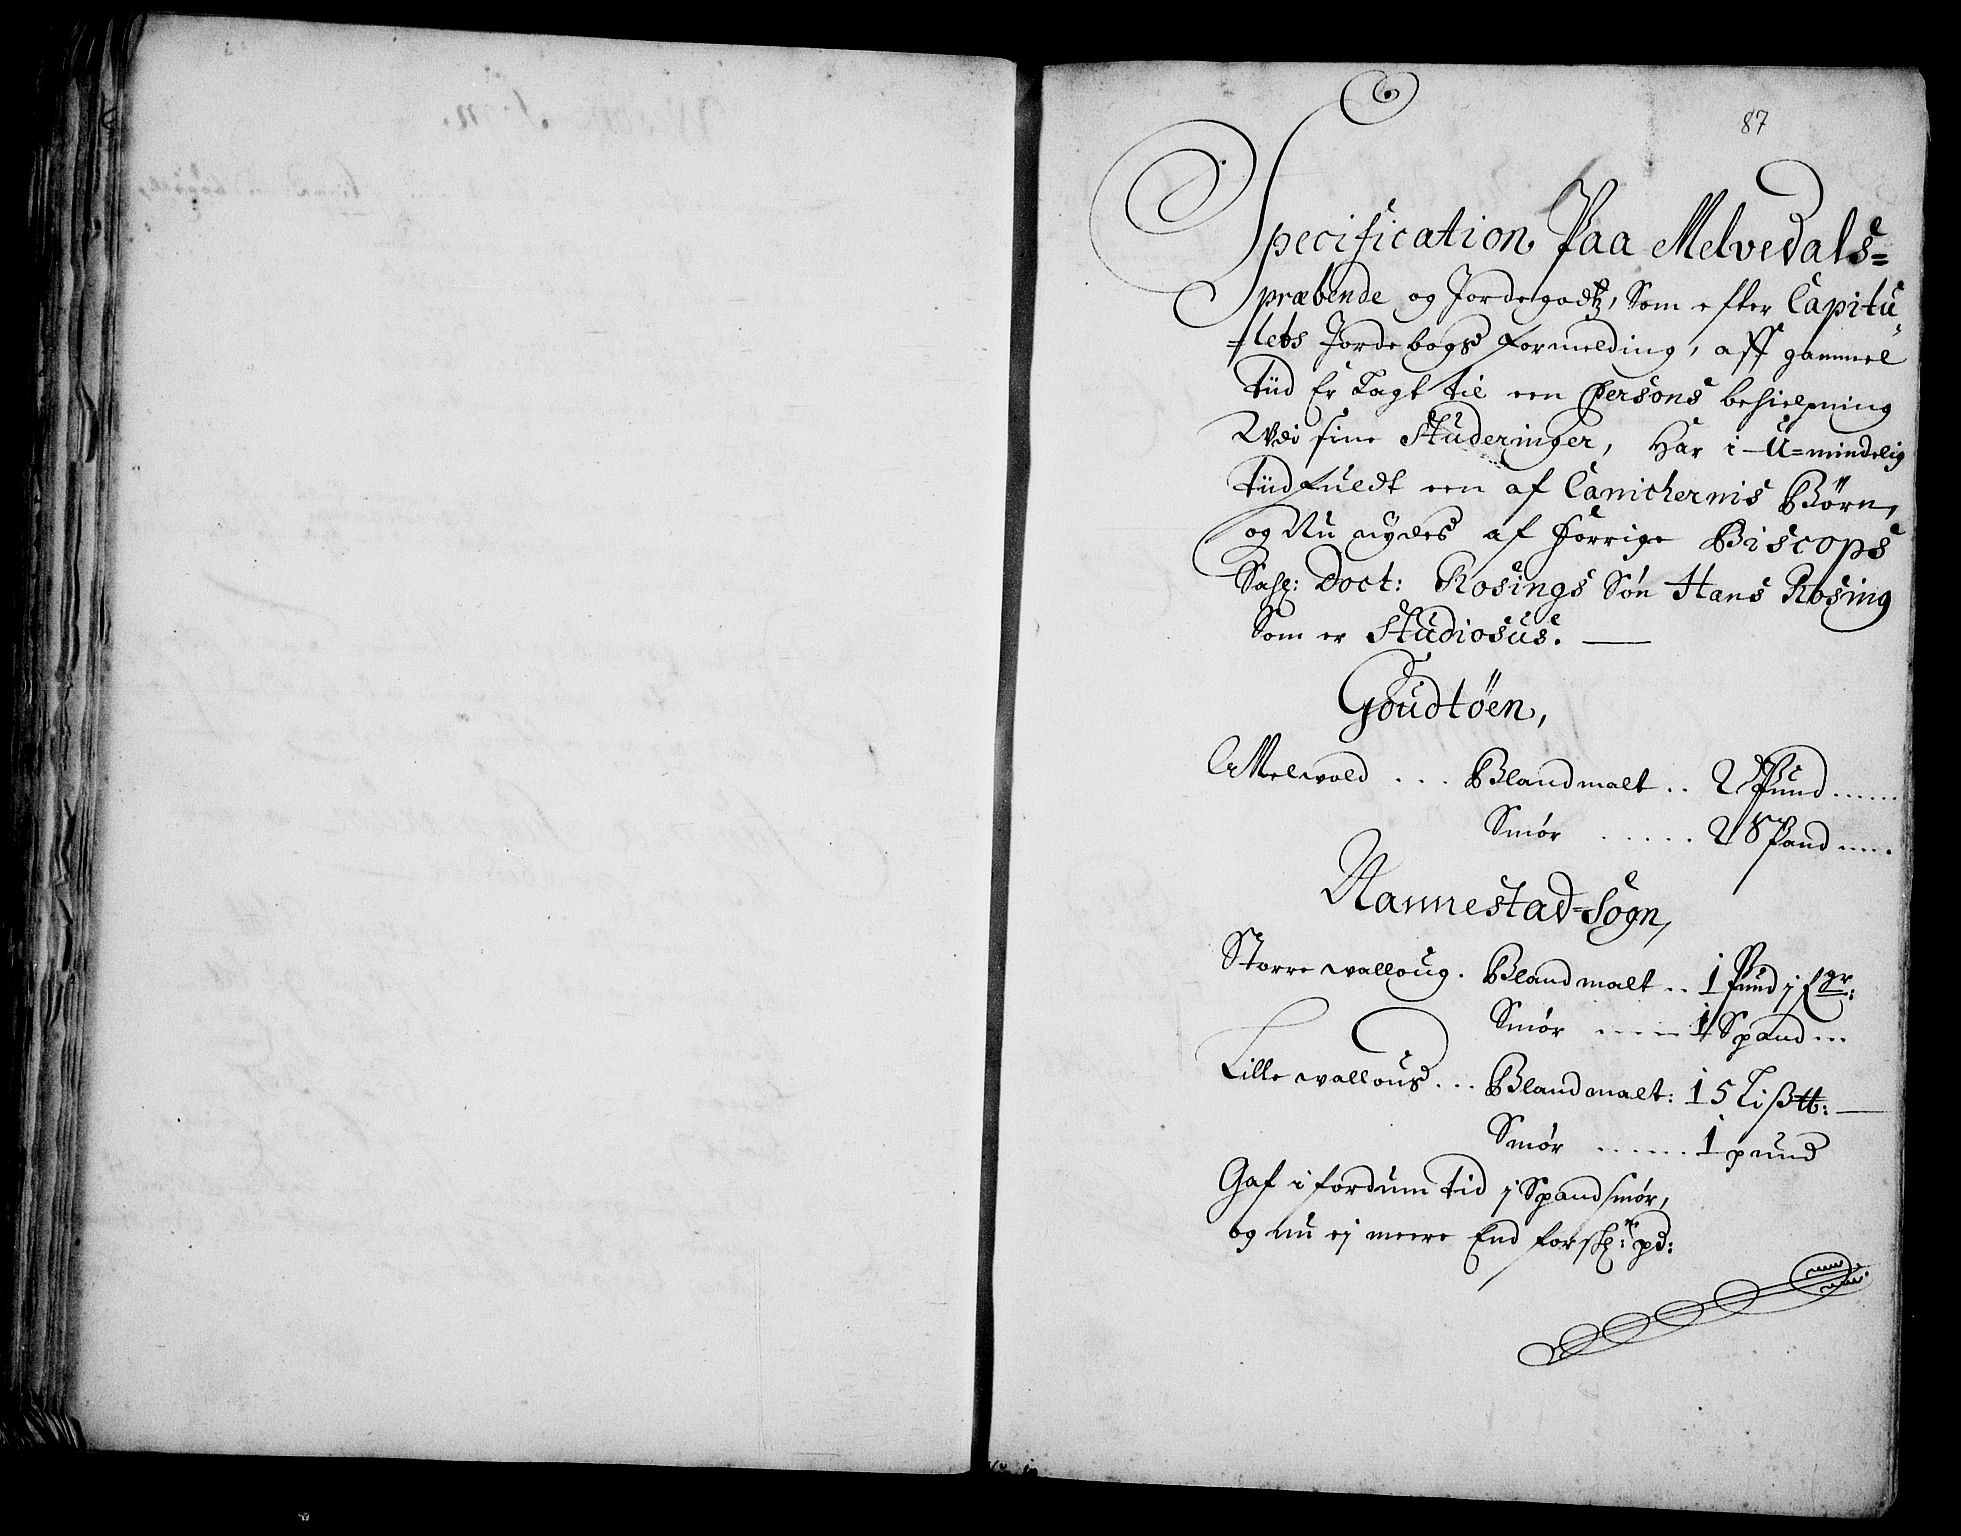 87
Specification Paa Melvedals=
præbende og Jordegodtz, Som efter Capitu„
=lets Jordebogs formelding, aff gammel
tiid Er Lagt til een Persons behielpning
Wdi sine Studeringer, Har i U=mindelig
tiid fuldt een af Canichernis Børn,
og Nu nydes af forrige Biscops
Sahl: Doct: Rosings Søn Hans Rosing
Som er Studiosus.
Goudtöen,
Melvold . . . Blandmalt . . 2 Pund ......
Smør ..... 2 Spand .....
Nannestad=Sogn,
Storre walloug . Blandmalt . . 1 Pund j
Smør ..... 1 Spand ...
Lille walloug . . . Blandmalt: 15 Liß℔:
Smør ...... 1 pund
Gaf i fordum tid j Spand smør,
og nu ej meere End forsk: pd: